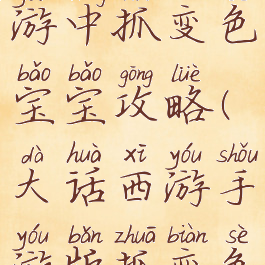 游中抓变色
bǎo bǎo gōng lüè
宝宝攻略(
dà huà xī yóu shǒu
大话西游手
yóu bǎn zhuā biàn sè
游版抓变色